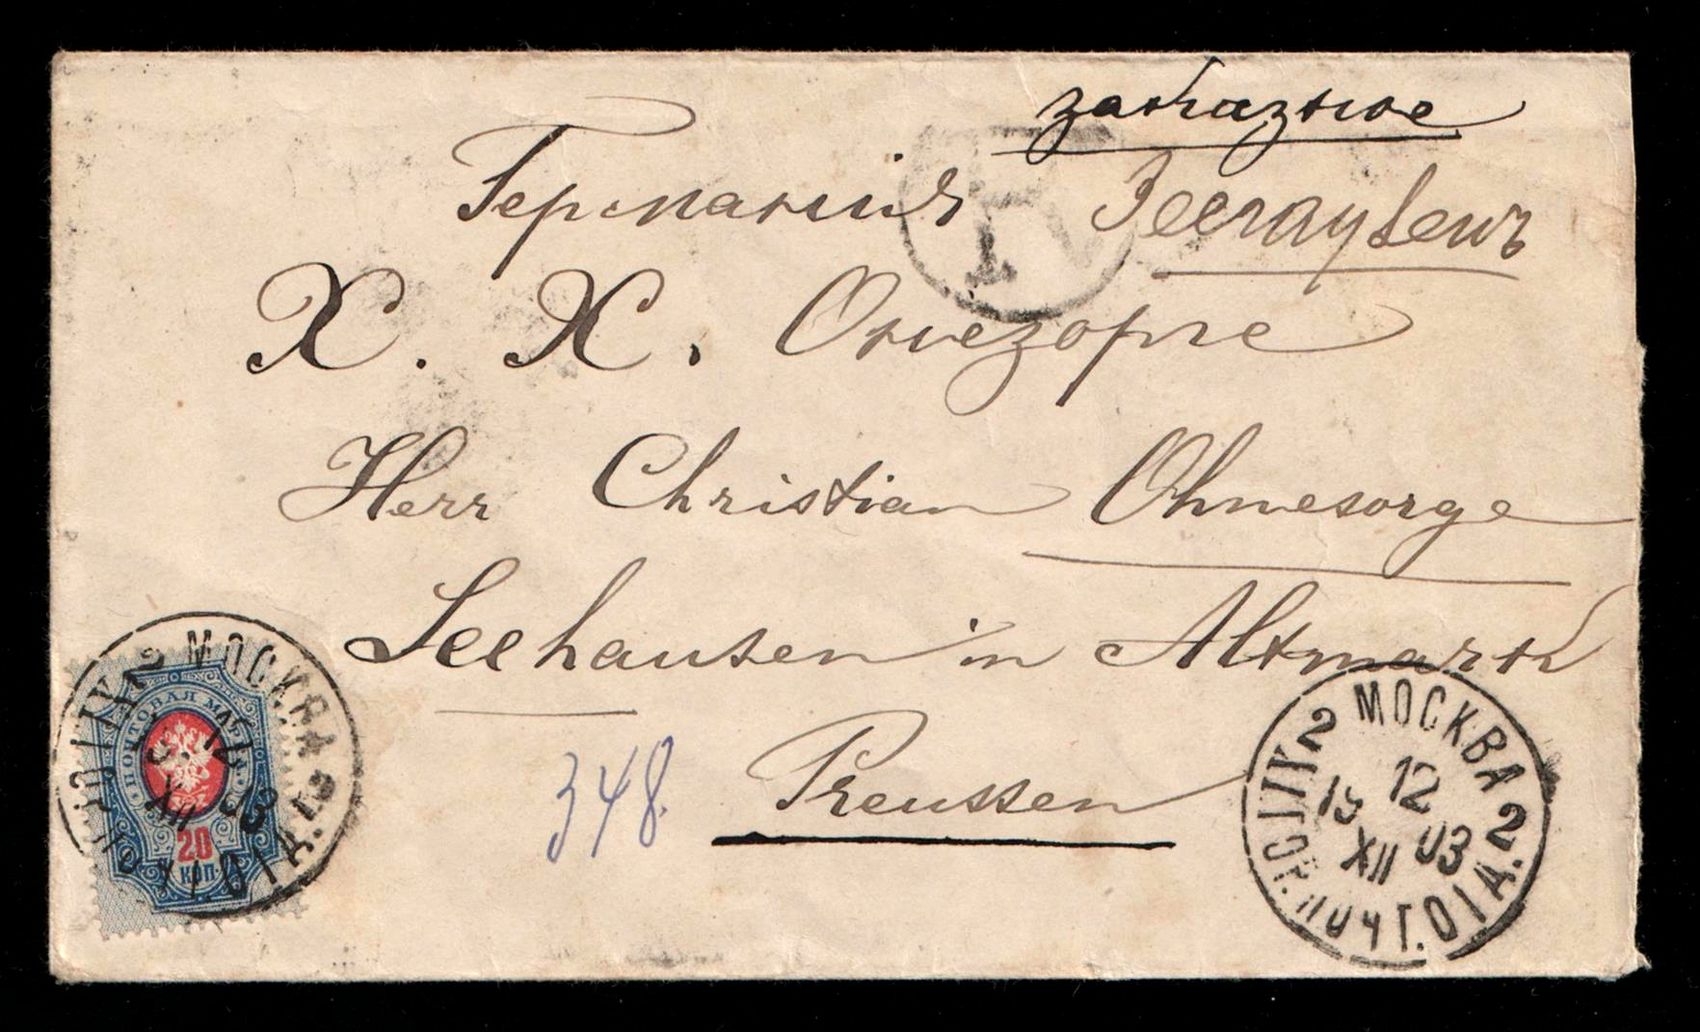 заказное
Германия Зеегаузенъ
Х. Х. Онезорге
Herr Christian Ohnesorge
Seehausen in Altmark
Preussen
348.
ПОЧТОВАЯ МАРКА
20
КОП.
МОСКВА
2
XII 03
МОСКВА
2 2
12
19
XII 03
ГОР. ПОЧТ. ОТД.